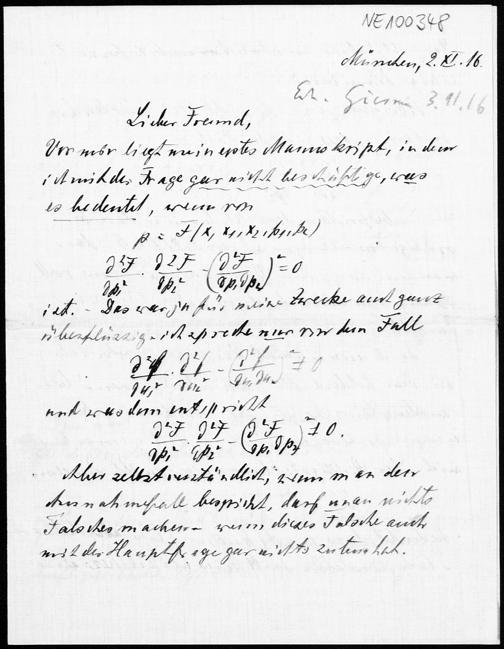 NE100348
München, 2. XI. 16.
3. XI. 16
Lieber Freund,
Vor mir liegt mein erstes Manuskript, in dem
ich mich mit der Frage gar nicht beschäftige, was
es bedeutet, wenn von
p = F(x, x₁, x₂, p₁, p₂)
∂²F/∂p₁² · ∂²F/∂p₂² - (∂²F/∂p₁∂p₂)² = 0
ist. - Das war ja für meine Zwecke auch ganz
überflüssig: ich spreche nur von dem Fall
≠ 0
und was dem entspricht
∂²F/∂p₁² · ∂²F/∂p₂² - (∂²F/∂p₁∂p₂)² ≠ 0.
Aber selbstverständlich, wenn man den
Ausnahmefall bespricht, darf man nichts
Falsches machen - wenn dieses Falsche auch
mit der Hauptfrage gar nichts zu tun hat.